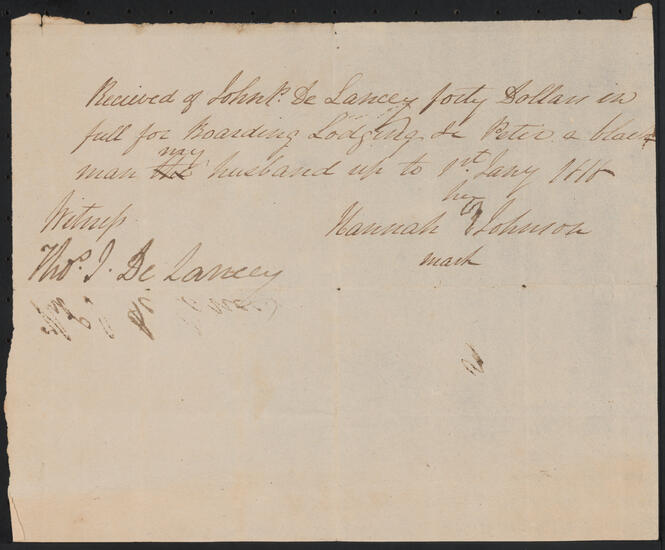 Received of John P. De Lancey forty Dollars in
full for Boarding Lodging &c Peter a black
man my husband up to 1st. Jany 1816
Witness
her
Hannah Johnson
mark
Thos. J. De Lancey